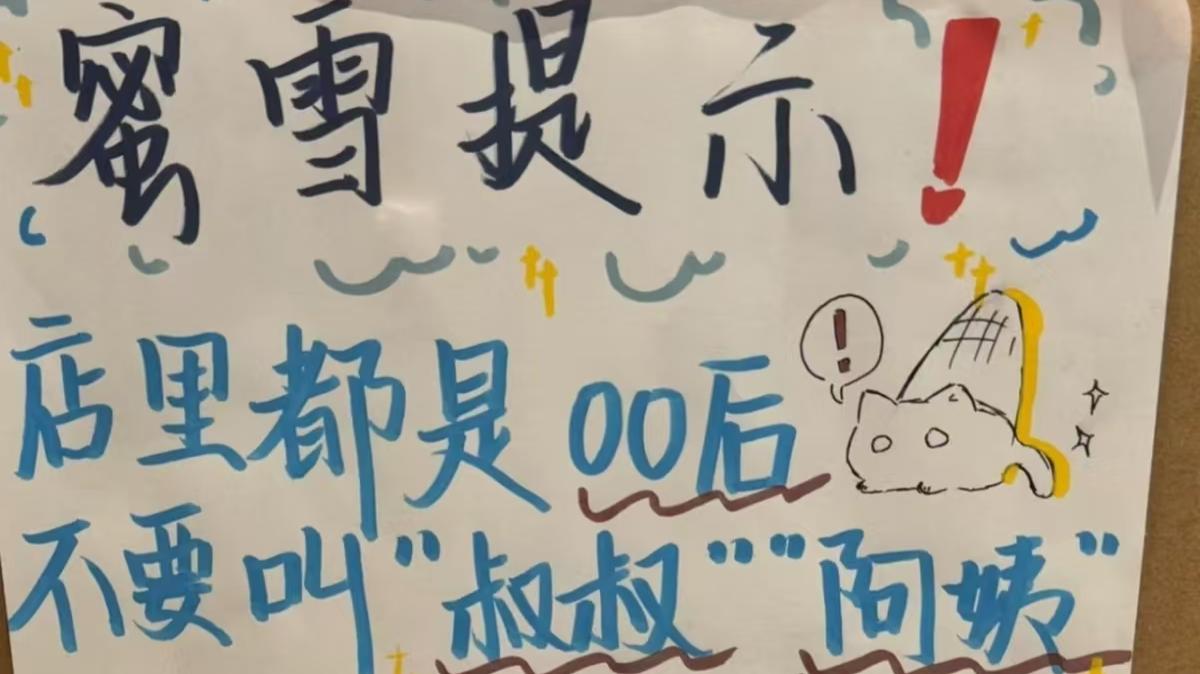 蜜雪提示!
!
店里都是00后
不要叫“叔叔”“阿姨”